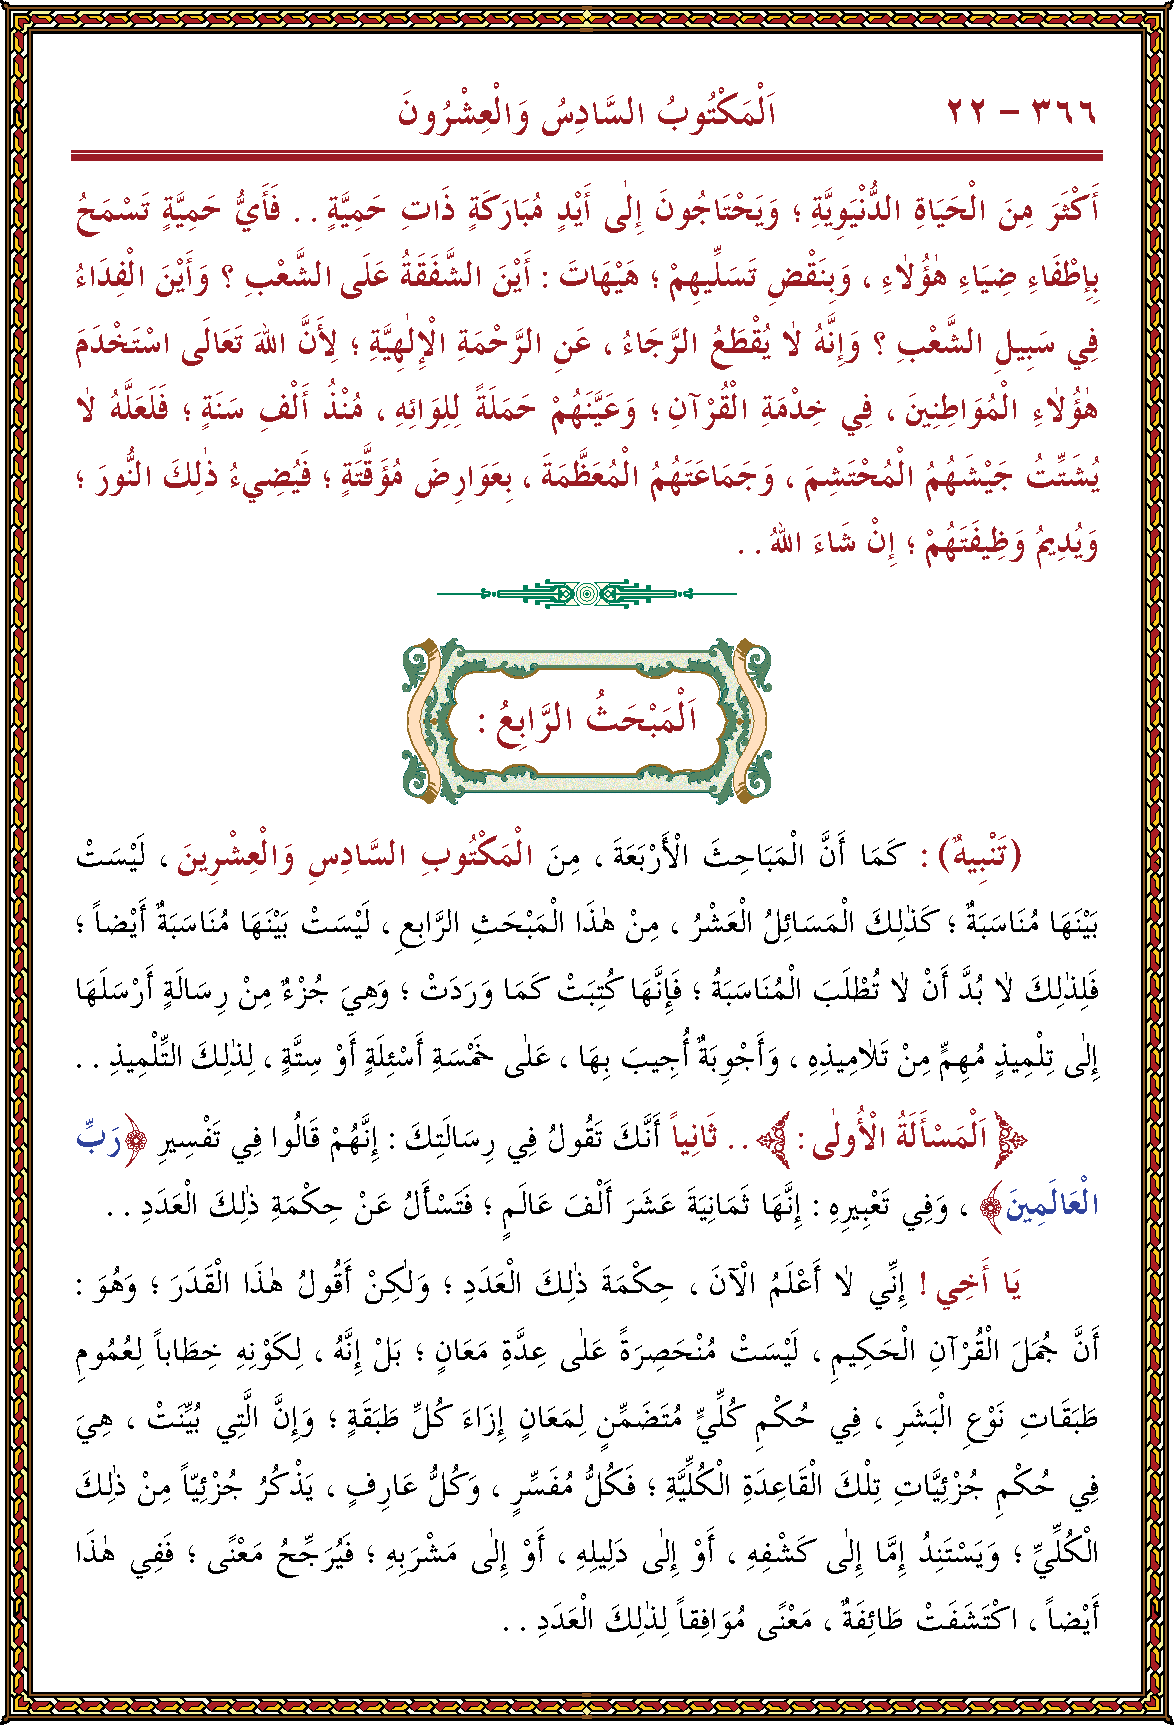 ٣٦٦ - ٢٢ اَلْمَكْتُوبُ السَّادِسُ وَالْعِشْرُونَ
أَكْثَرَ مِنَ الْحَيَاةِ الدُّنْيَوِيَّةِ ؛ وَيَحْتَاجُونَ إِلٰى أَيْدٍ مُبَارَكَةٍ ذَاتِ حَمِيَّةٍ . . فَأَيُّ حَمِيَّةٍ تَسْمَحُ
بِإِطْفَاءِ ضِيَاءِ هٰؤُلاٰءِ ، وَبِنَقْضِ تَسَلِّيهِمْ ؛ هَيْهَاتَ : أَيْنَ الشَّفَقَةُ عَلَى الشَّعْبِ ؟ وَأَيْنَ الْفِدَاءُ
فِي سَبِيلِ الشَّعْبِ ؟ وَإِنَّهُ لاٰ يُقْطَعُ الرَّجَاءُ ، عَنِ الرَّحْمَةِ الْإِلٰهِيَّةِ ؛ لِأَنَّ اللهَ تَعَالَى اسْتَخْدَمَ
هٰؤُلاٰءِ الْمُوَاطِنِينَ ، فِي خِدْمَةِ الْقُرْآنِ ؛ وَعَيَّنَهُمْ حَمَلَةً لِلِوَائِهِ ، مُنْذُ أَلْفِ سَنَةٍ ؛ فَلَعَلَّهُ لاٰ
يُشَتِّتُ جَيْشَهُمُ الْمُحْتَشِمَ ، وَجَمَاعَتَهُمُ الْمُعَظَّمَةَ ، بِعَوَارِضَ مُؤَقَّتَةٍ ؛ فَيُضِيءُ ذٰلِكَ النُّورَ ؛
وَيُدِيمُ وَظِيفَتَهُمْ ؛ إِنْ شَاءَ اللهُ . .
اَلْمَبْحَثُ الرَّابِعُ :
(تَنْبِيهٌ) : كَمَا أَنَّ الْمَبَاحِثَ الْأَرْبَعَةَ ، مِنَ الْمَكْتُوبِ السَّادِسِ وَالْعِشْرِينَ ، لَيْسَتْ
بَيْنَهَا مُنَاسَبَةٌ ؛ كَذٰلِكَ الْمَسَائِلُ الْعَشْرُ ، مِنْ هٰذَا الْمَبْحَثِ الرَّابِعِ ، لَيْسَتْ بَيْنَهَا مُنَاسَبَةٌ أَيْضاً ؛
فَلِذٰلِكَ لاٰ بُدَّ أَنْ لاٰ تُطْلَبَ الْمُنَاسَبَةُ ؛ فَإِنَّهَا كُتِبَتْ كَمَا وَرَدَتْ ؛ وَهِيَ جُزْءٌ مِنْ رِسَالَةٍ أَرْسَلَهَا
إِلٰى تِلْمِيذٍ مُهِمٍّ مِنْ تَلاٰمِيذِهِ ، وَأَجْوِبَةٌ أُجِيبَ بِهَا ، عَلٰى خَمْسَةِ أَسْئِلَةٍ أَوْ سِتَّةٍ ، لِذٰلِكَ التِّلْمِيذِ . .
﴿اَلْمَسْأَلَةُ الْأُولٰى : ﴾ . . ثَانِياً أَنَّكَ تَقُولُ فِي رِسَالَتِكَ : إِنَّهُمْ قَالُوا فِي تَفْسِيرِ ﴿رَبِّ
الْعَالَمِينَ﴾ ، وَفِي تَعْبِيرِهِ : إِنَّهَا ثَمَانِيَةَ عَشَرَ أَلْفَ عَالَمٍ ؛ فَتَسْأَلُ عَنْ حِكْمَةِ ذٰلِكَ الْعَدَدِ . .
يَا أَخِي ! إِنِّي لاٰ أَعْلَمُ الْآنَ ، حِكْمَةَ ذٰلِكَ الْعَدَدِ ؛ وَلٰكِنْ أَقُولُ هٰذَا الْقَدَرَ ؛ وَهُوَ :
أَنَّ جُمَلَ الْقُرْآنِ الْحَكِيمِ ، لَيْسَتْ مُنْحَصِرَةً عَلٰى عِدَّةِ مَعَانٍ ؛ بَلْ إِنَّهُ ، لِكَوْنِهِ خِطَاباً لِعُمُومِ
طَبَقَاتِ نَوْعِ الْبَشَرِ ، فِي حُكْمِ كُلِّيٍّ مُتَضَمِّنٍ لِمَعَانٍ إِزَاءَ كُلِّ طَبَقَةٍ ؛ وَإِنَّ الَّتِي بُيِّنَتْ ، هِيَ
فِي حُكْمِ جُزْئِيَّاتِ تِلْكَ الْقَاعِدَةِ الْكُلِّيَّةِ ؛ فَكُلُّ مُفَسِّرٍ ، وَكُلُّ عَارِفٍ ، يَذْكُرُ جُزْئِيّاً مِنْ ذٰلِكَ
الْكُلِّيِّ ؛ وَيَسْتَنِدُ إِمَّا إِلٰى كَشْفِهِ ، أَوْ إِلٰى دَلِيلِهِ ، أَوْ إِلٰى مَشْرَبِهِ ؛ فَيُرَجِّحُ مَعْنًى ؛ فَفِي هٰذَا
أَيْضاً ، اكْتَشَفَتْ طَائِفَةٌ ، مَعْنًى مُوَافِقاً لِذٰلِكَ الْعَدَدِ . .